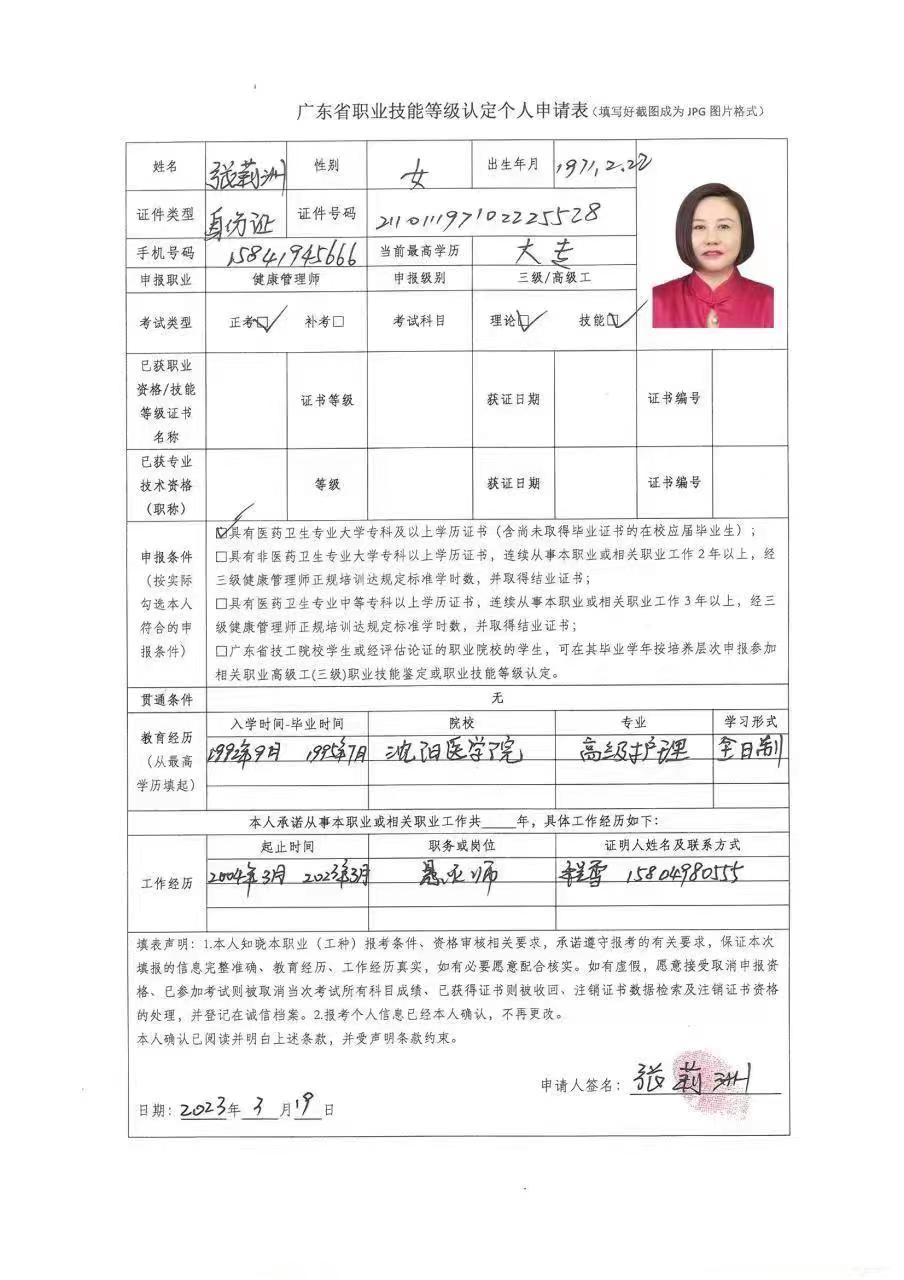 广东省职业技能等级认定个人申请表（填写好截图成为 JPG 图片格式）
姓名 张莉洲 性别 女 出生年月 1971.2.22
证件类型 身份证 证件号码 211011197102225528
手机号码 15841945666 当前最高学历 大专
申报职业 健康管理师 申报级别 三级/高级工
考试类型 正考☑ 补考□ 考试科目 理论☑ 技能☑
已获职业
资格/技能
等级证书
名称
证书等级 获证日期 证书编号
已获专业
技术资格
（职称）
等级 获证日期 证书编号
申报条件
（按实际
勾选本人
符合的申
报条件）
☑具有医药卫生专业大学专科及以上学历证书（含尚未取得毕业证书的在校应届毕业生）；
□具有非医药卫生专业大学专科以上学历证书，连续从事本职业或相关职业工作 2 年以上，经
三级健康管理师正规培训达规定标准学时数，并取得结业证书；
□具有医药卫生专业中等专科以上学历证书，连续从事本职业或相关职业工作 3 年以上，经三
级健康管理师正规培训达规定标准学时数，并取得结业证书；
□广东省技工院校学生或经评估论证的职业院校的学生，可在其毕业学年按培养层次申报参加
相关职业高级工(三级)职业技能鉴定或职业技能等级认定。
贯通条件 无
教育经历
（从最高
学历填起）
入学时间-毕业时间 院校 专业 学习形式
1992年9月 1995年7月 沈阳医学院 高级护理 全日制
本人承诺从事本职业或相关职业工作共____年，具体工作经历如下：
工作经历
起止时间 职务或岗位 证明人姓名及联系方式
2004年3月 2023年3月 师 程雪 15804980555
填表声明：1.本人知晓本职业（工种）报考条件、资格审核相关要求，承诺遵守报考的有关要求，保证本次
填报的信息完整准确、教育经历、工作经历真实，如有必要愿意配合核实。如有虚假，愿意接受取消申报资
格、已参加考试则被取消当次考试所有科目成绩、已获得证书则被收回、注销证书数据检索及注销证书资格
的处理，并登记在诚信档案。2.报考个人信息已经本人确认，不再更改。
本人确认已阅读并明白上述条款，并受声明条款约束。
申请人签名：张莉洲
日期：2023年 3 月 19 日